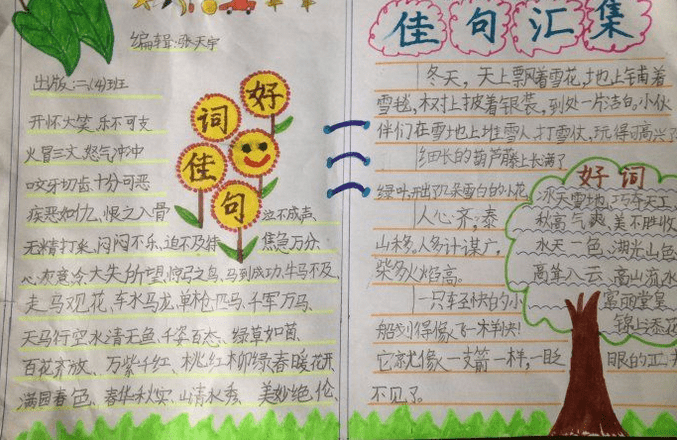 编辑:张天宇
出版:二(4)班
好词佳句
开怀大笑、乐不可支
火冒三丈、怒气冲冲
咬牙切齿、十分可恶
疾恶如仇、恨之入骨 泣不成声、
无精打采、闷闷不乐、迫不及待 焦急万分、
心灰意冷、大失所望、惊弓之鸟、马到成功、牛马不及、
走马观花、车水马龙、单枪匹马、千军万马、
天马行空、水清无鱼、千姿百态、绿草如茵、
百花齐放、万紫千红、桃红柳绿、春暖花开、
满园春色、春华秋实、山清水秀、美妙绝伦、
佳句汇集
冬天,天上飘着雪花,地上铺着
雪毯,树上披着银装,到处一片洁白,小伙
伴们在雪地上堆雪人,打雪仗,玩得可高兴了
细长的葫芦藤上长满了
绿叶,开出了几朵雪白的小花
人心齐,泰
山移。人多计谋广,
柴多火焰高。
一只轻快的小
船划得像飞一样
它就像一支箭一样,一眨眼的工夫
不见了。
好词
冰天雪地、巧夺天工
秋高气爽、美不胜收
水天一色、湖光山色
高耸入云、高山流水
富丽堂皇
锦上添花